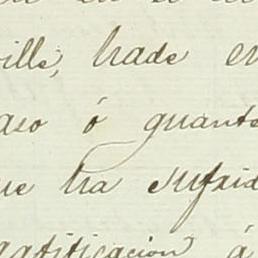 ville, hade en
aso ó quanto
ue ha sufrid
gratificacion á